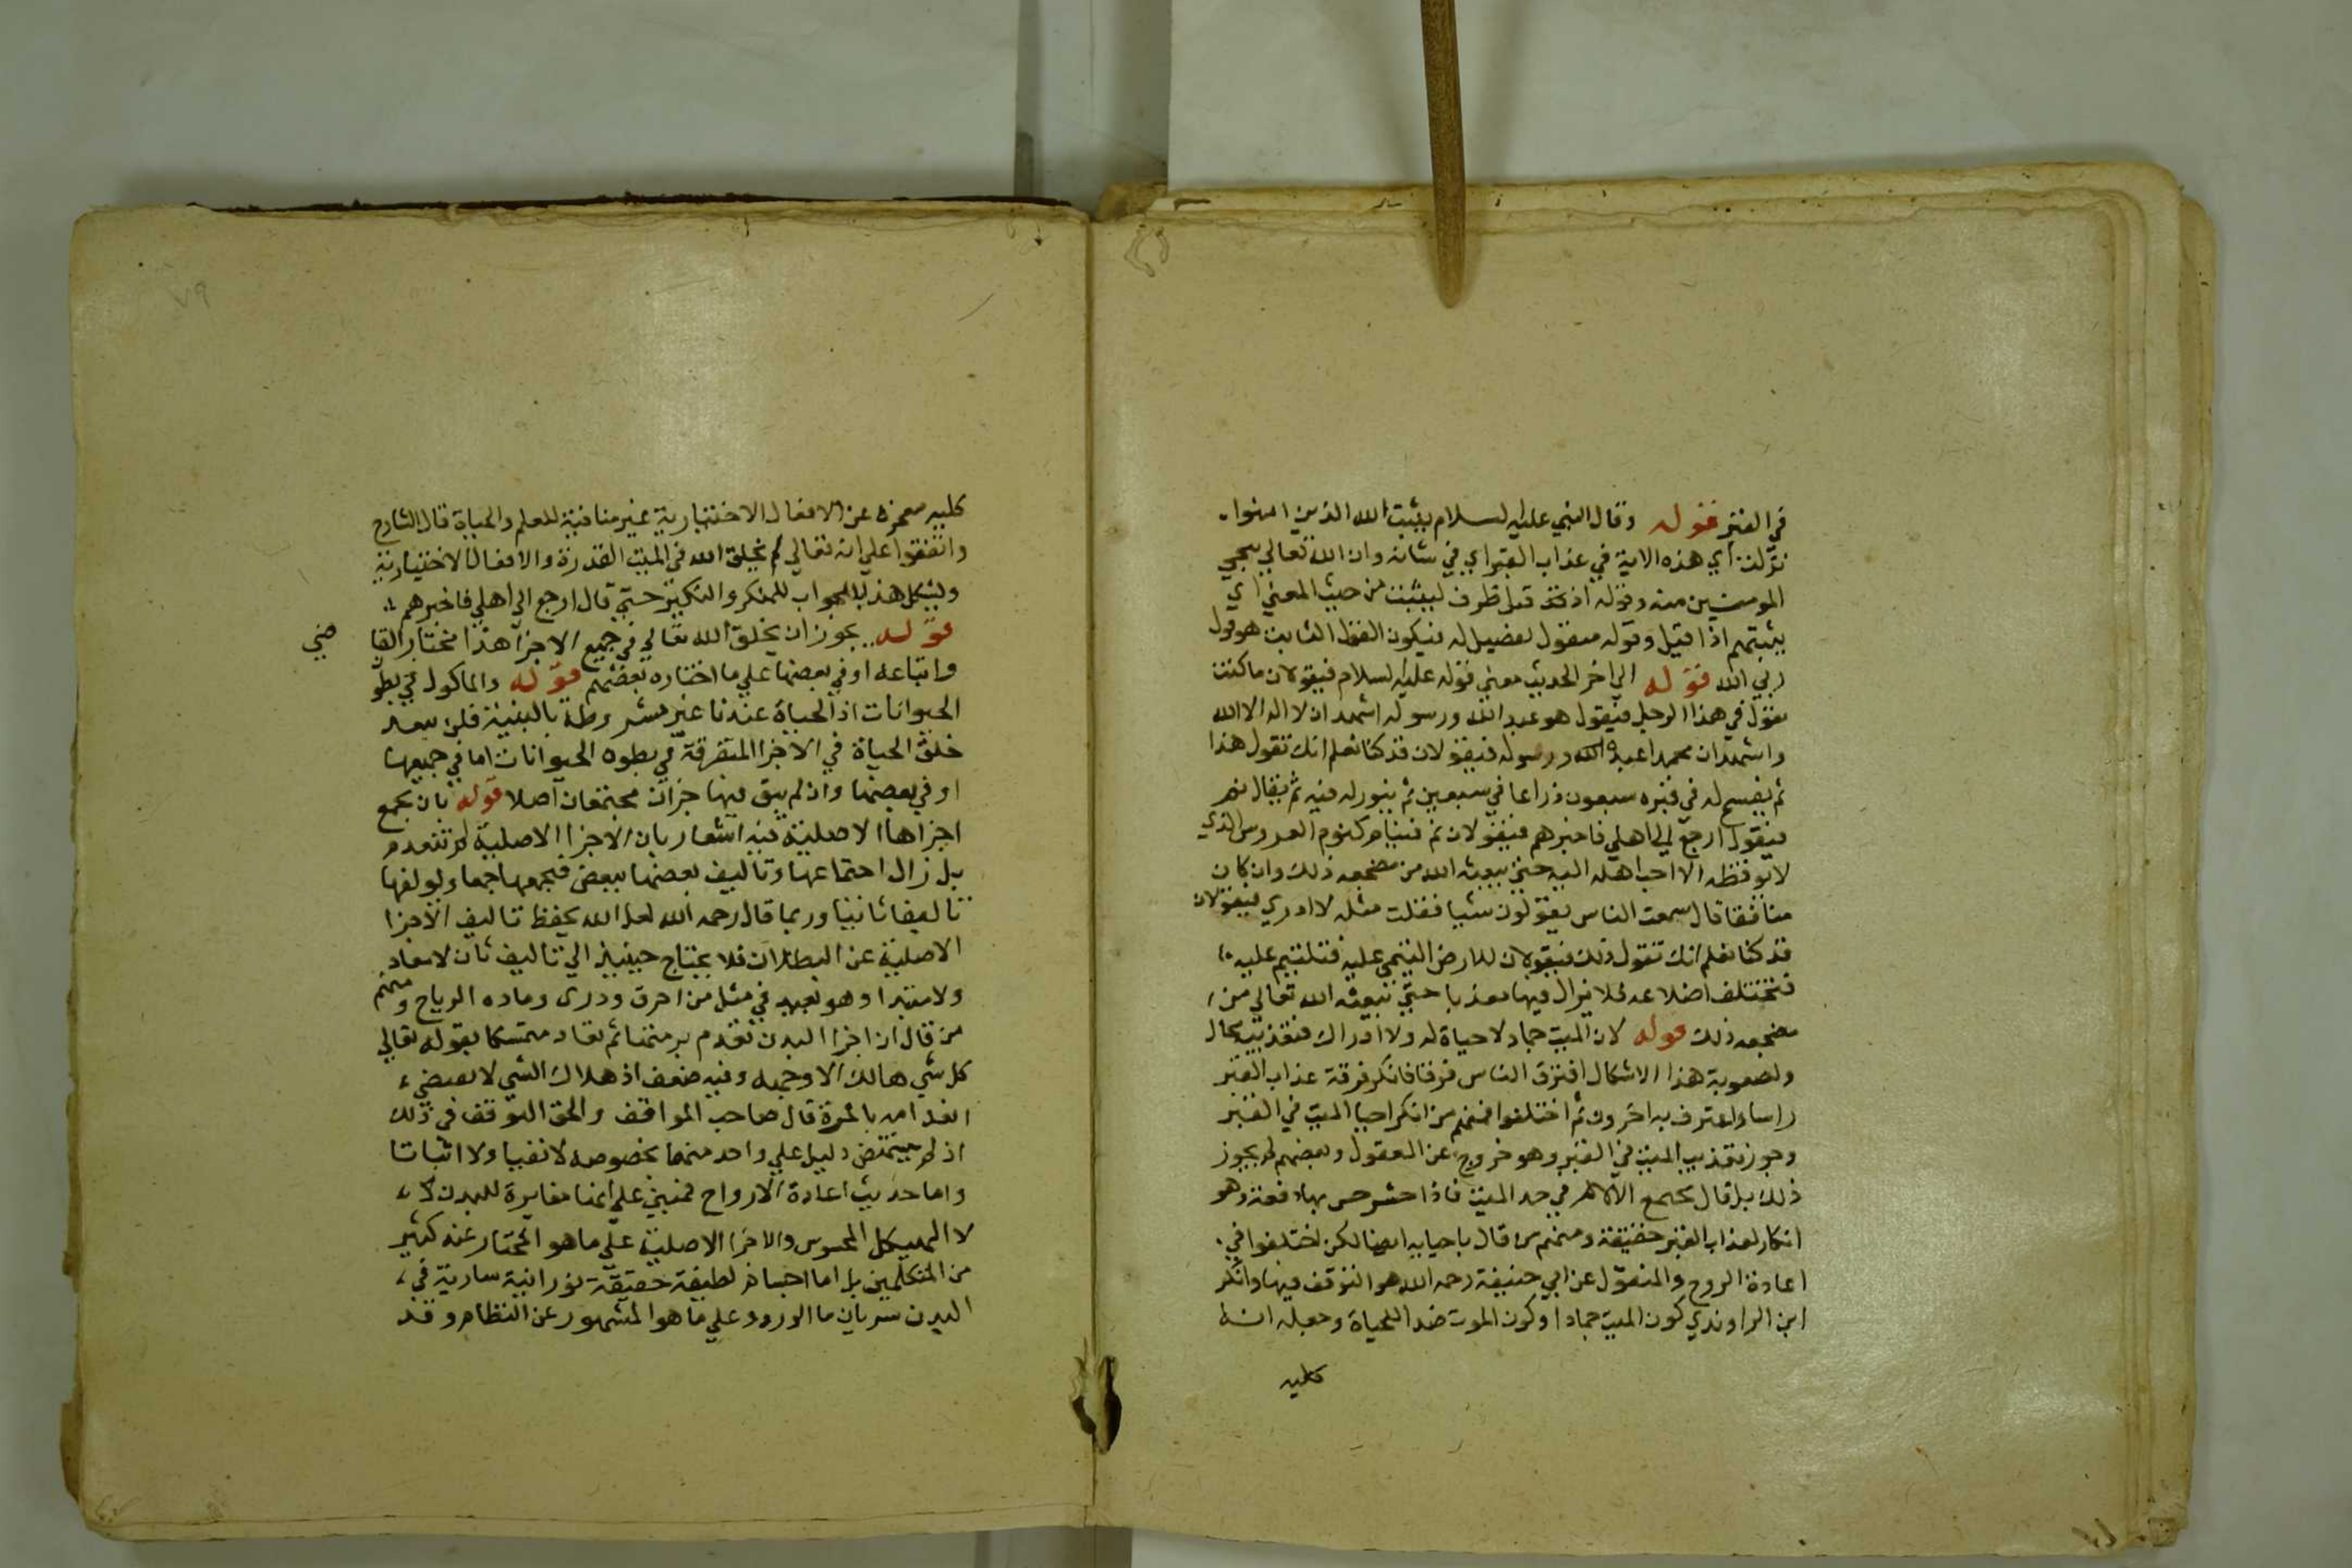 في القبر قوله وقال النبي عليه السلام يثبت الله الذين امنوا
نزلت اي هذه الاية في عذاب القبر اي في شانه وان الله تعالي ينجي
المومنين منه وقوله اذ قيل ظرف ليثبت من حيث المعني اي
يثبتهم اذا قيل وقوله فيقول تفصيل له فيكون القول الثابت هو قول
ربي الله قوله الي اخر الحديث معني قوله عليه السلام فيقولان ما كنت
تقول في هذا الرجل فيقول هو عبد الله ورسوله اشهد ان لا اله الا الله
واشهد ان محمدا عبد الله ورسوله فيقولان قد كنا نعلم انك تقول هذا
ثم يفسح له في قبره سبعون ذراعا في سبعين ثم ينور له فيه ثم يقال نم
فيقول ارجع الي اهلي فاخبرهم فيقولان نم فينام كنوم العروس الذي
لا يوقظه الا احب اهله اليه حتي يبعثه الله من مضجعه ذلك وان كان
منافقا قال سمعت الناس يقولون شيا فقلت مثله لا ادري فيقولان
قد كنا نعلم انك تقول ذلك فيقولان للارض التئمي عليه فتلتئم عليه
فتختلف اضلاعه فلا يزال فيها معذبا حتي يبعثه الله تعالي من
مضجعه ذلك قوله لان الميت جماد لا حياة له ولا ادراك فتعذيبه محال
ولصعوبة هذا الاشكال افترق الناس فرقا فانكر فرقة عذاب القبر
راسا واعترف به اخرون ثم اختلفوا فمنهم من انكر احيا الميت في القبر
وجوز تعذيب الميت في القبر وهو خروج عن المعقول وبعضهم لم يجوز
ذلك بل قال يجمع الآلام في جسد الميت فاذا حشر حس بها دفعة وهو
انكار لعذاب القبر حقيقة ومنهم من قال باحيايه ايضا لكن اختلفوا في
اعادة الروح والمنقول عن ابي حنيفة رحمه الله هو التوقف فيها وانكر
ابن الراوندي كون الميت جمادا وكون الموت ضدا للحياة وجعله افة
كليه
٧٩
كليه معجزه عن الافعال الاختيارية غير منافية للعلم والحياة قال الشارح
واتفقوا علي انه تعالي لم يخلق الله في الميت القدرة والافعال الاختيارية
ويشكل هذا بالجواب للمنكر والنكير حتي قال ارجع الي اهلي فاخبرهم
قوله يجوز ان يخلق الله تعالي في جميع الاجزا هذا مختار القا
ضي
واتباعه او في بعضها علي ما اختاره بعضهم قوله والماكول في بطو
الحيوانات اذ الحياة عندنا غير مشروطة بالبنية فلا يبعد
خلق الحياة في الاجزا المتفرقة في بطون الحيوانات اما في جميعها
او في بعضها وان لم يبق فيها جزان مجتمعان اصلا قوله بان يجمع
اجزاها الاصلية فيه اشعار بان الاجزا الاصلية لم تنعدم
بل زال اجتماعها وتاليف بعضها ببعض فيجمعها جمعا ويولفها
تاليفا ثانيا وربما قال رحمه الله لعل الله يحفظ تاليف الاجزا
الاصلية عن البطلان فلا يحتاج حينيذ الي تاليف ثان لا معاد
ولا مبتدا وهو بعيد في مثل من احرق وذري رماده الرياح ومنهم
من قال ان اجزا البدن تعدم برمتها ثم تعاد متمسكا بقوله تعالي
كل شي هالك الا وجهه وفيه ضعف اذ هلاك الشي لا يقتضي
انعدامه بالمرة قال صاحب المواقف والحق التوقف في ذلك
اذ لم ينتهض دليل علي واحد منهما بخصوصه لا نفيا ولا اثباتا
واما حديث اعادة الارواح فمبني علي انها مغايرة للبدن
لا الهيكل المحسوس والاجزا الاصلية علي ما هو المختار عند كثير
من المتكلمين بل اما اجسام لطيفة حقيقة نورانية سارية في
البدن سريان ما الورد علي ما هو المشهور عن النظام وقد